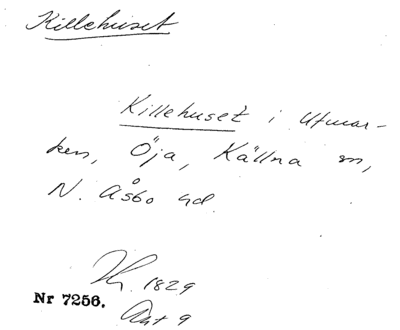 Killehuset
Killehuset i Utmar-
ken, Öja, Källna sn,
N. Åsbo hd.
1829
Nr 7256.
Ant 9